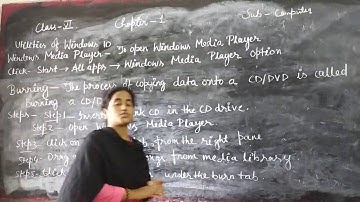 Class-VI Chapter-1 Sub-Computer
Utilities of Windows 10
Windows Media Player - To open Windows Media Player
Click Start → All apps → Windows Media Player option
Burning - The process of copying data onto a CD/DVD is called
burning a CD/D
Steps - Step1- Insert CD in the CD drive.
Step2- Open Media Player
Step3- Click on from the right pane
Step4- Drag from media library
Step5- under the burn tab.